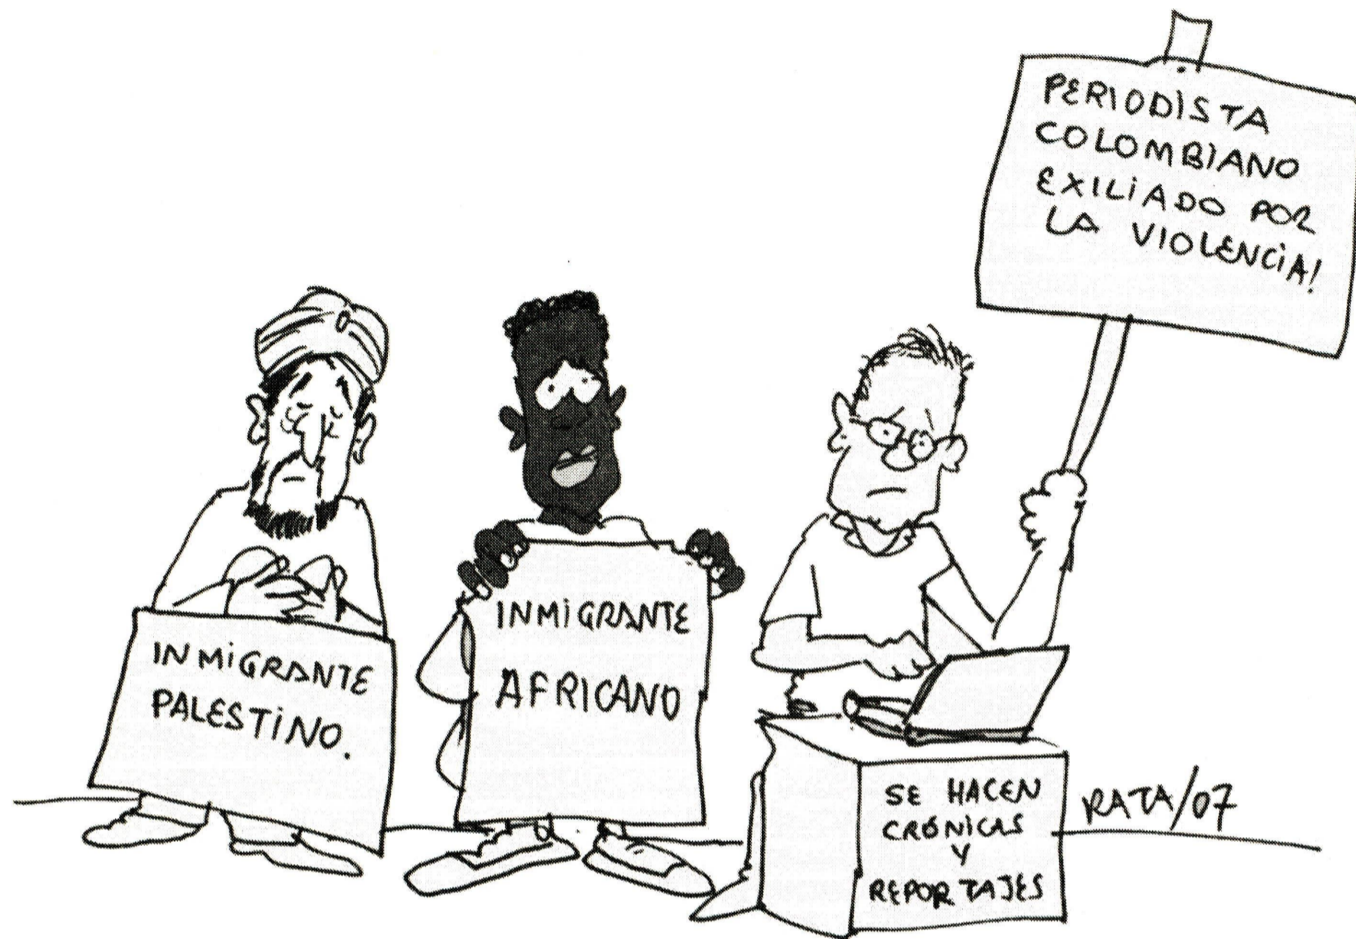 PERIODISTA
COLOMBIANO
EXILIADO POR
LA VIOLENCIA!
INMIGRANTE
PALESTINO.
INMIGRANTE
AFRICANO
SE HACEN
CRÓNICAS
Y
REPORTAJES
RATA/07